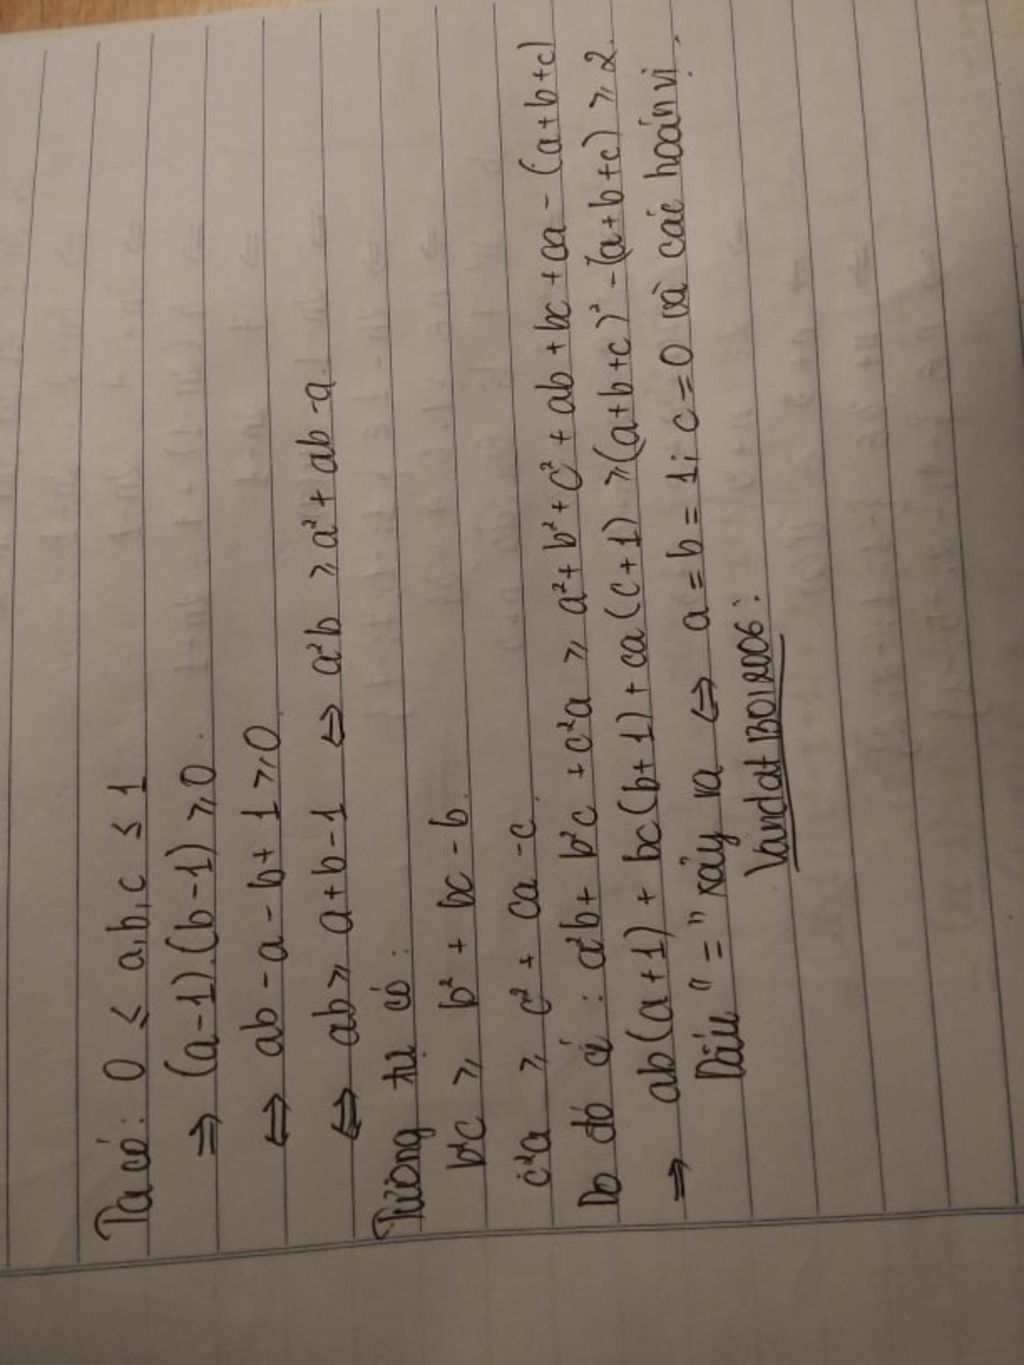 Ta có: 0 ≤ a,b,c ≤ 1
⇒ (a-1).(b-1) ≥ 0.
⇔ ab - a - b + 1 ≥ 0
⇔ ab ≥ a+b-1 ⇔ a²b ≥ a² + ab - a.
Tương tự có:
b²c ≥ b² + bc - b.
c²a ≥ c² + ca - c.
Do đó có: a²b + b²c + c²a ≥ a² + b² + c² + ab + bc + ca - (a+b+c)
⇒ ab(a+1) + bc(b+1) + ca(c+1) ≥ (a+b+c)² - (a+b+c) ≥ 2.
Dấu "=" xảy ra ⇔ a = b = 1; c = 0 và các hoán vị.
Vandat13012006: